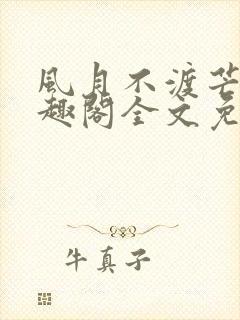 風月不渡芒
趣閣全文免
牛真子